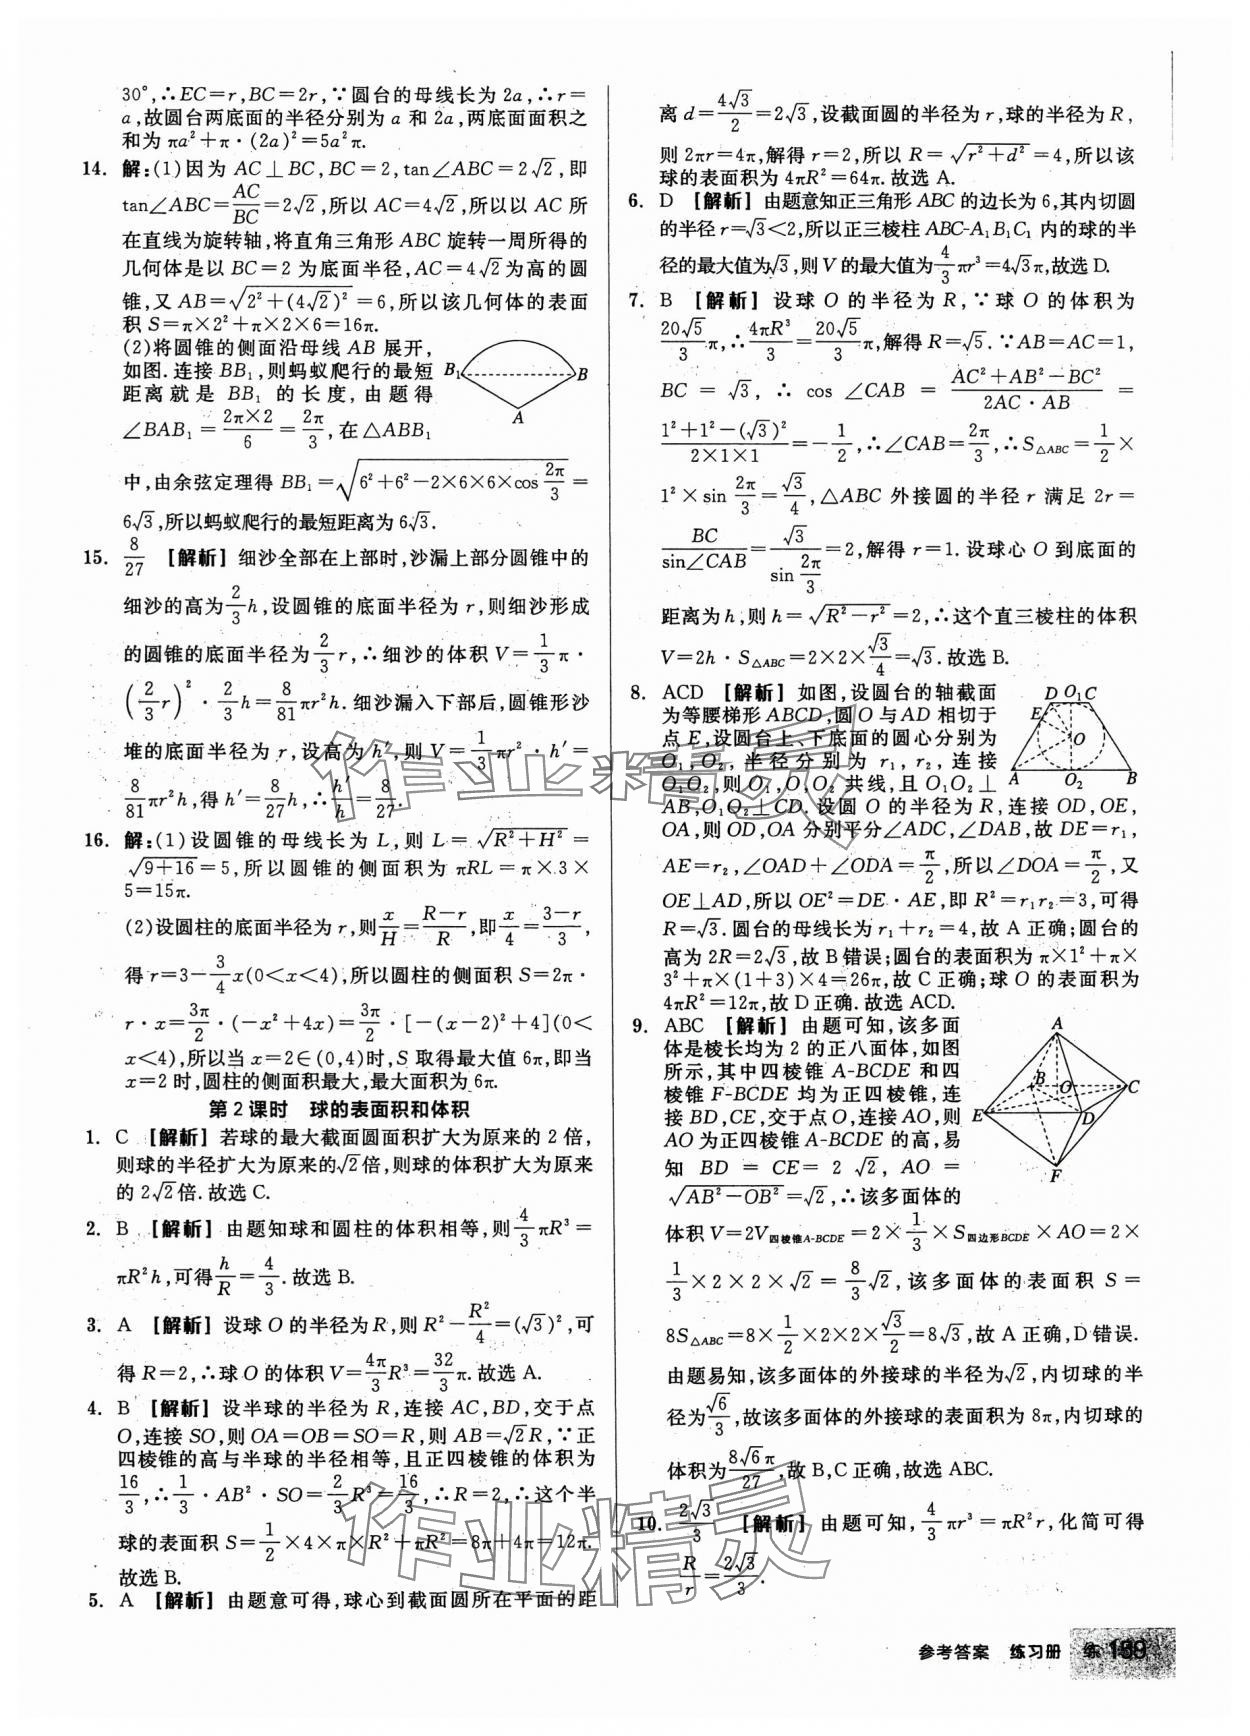 30°,∴EC=r,BC=2r,∵圆台的母线长为2a,∴r=
a,故圆台两底面的半径分别为a和2a,两底面面积之
和为πa²+π·(2a)²=5a²π.
14. 解:(1)因为AC⊥BC,BC=2,tan∠ABC=2√2,即
tan∠ABC=AC/BC=2√2,所以AC=4√2,所以以AC所
在直线为旋转轴,将直角三角形ABC旋转一周所得的
几何体是以BC=2为底面半径,AC=4√2为高的圆
锥,又AB=√(2²+(4√2)²)=6,所以该几何体的表面
积S=π×2²+π×2×6=16π.
(2)将圆锥的侧面沿母线AB展开,
如图.连接BB₁,则蚂蚁爬行的最短
距离就是BB₁的长度,由题得
∠BAB₁=2π×2/6=2π/3,在△ABB₁
B₁ B
A
中,由余弦定理得BB₁=√(6²+6²-2×6×6×cos 2π/3)=
6√3,所以蚂蚁爬行的最短距离为6√3.
15. 8/27 [解析] 细沙全部在上部时,沙漏上部分圆锥中的
细沙的高为2/3 h,设圆锥的底面半径为r,则细沙形成
的圆锥的底面半径为2/3 r,∴细沙的体积V=1/3 π·
(2/3 r)²·2/3 h=8/81 πr²h.细沙漏入下部后,圆锥形沙
堆的底面半径为r,设高为h′,则V=1/3 πr²·h′=
8/81 πr²h,得h′=8/27 h,∴h′/h=8/27.
16. 解:(1)设圆锥的母线长为L,则L=√(R²+H²)=
√(9+16)=5,所以圆锥的侧面积为πRL=π×3×
5=15π.
(2)设圆柱的底面半径为r,则x/H=(R-r)/R,即x/4=(3-r)/3,
得r=3-3/4 x(0<x<4),所以圆柱的侧面积S=2π·
r·x=3π/2·(-x²+4x)=3π/2·[-(x-2)²+4](0<
x<4),所以当x=2∈(0,4)时,S取得最大值6π,即当
x=2时,圆柱的侧面积最大,最大面积为6π.
第2课时 球的表面积和体积
1. C [解析] 若球的最大截面圆面积扩大为原来的2倍,
则球的半径扩大为原来的√2倍,则球的体积扩大为原来
的2√2倍.故选C.
2. B [解析] 由题知球和圆柱的体积相等,则4/3 πR³=
πR²h,可得h/R=4/3.故选B.
3. A [解析] 设球O的半径为R,则R²-R²/4=(√3)²,可
得R=2,∴球O的体积V=4π/3 R³=32/3 π.故选A.
4. B [解析] 设半球的半径为R,连接AC,BD,交于点
O,连接SO,则OA=OB=SO=R,则AB=√2R,∵正
四棱锥的高与半球的半径相等,且正四棱锥的体积为
16/3,∴1/3·AB²·SO=2/3 R³=16/3,∴R=2,∴这个半
球的表面积S=1/2×4×π×R²+πR²=8π+4π=12π.
故选B.
5. A [解析] 由题意可得,球心到截面圆所在平面的距
离d=4√3/2=2√3,设截面圆的半径为r,球的半径为R,
则2πr=4π,解得r=2,所以R=√(r²+d²)=4,所以该
球的表面积为4πR²=64π.故选A.
6. D [解析] 由题意知正三角形ABC的边长为6,其内切圆
的半径r=√3<2,所以正三棱柱ABC-A₁B₁C₁内的球的半
径的最大值为√3,则V的最大值为4/3 πr³=4√3π,故选D.
7. B [解析] 设球O的半径为R,∵球O的体积为
20√5/3 π,∴4πR³/3=20√5/3 π,解得R=√5.∵AB=AC=1,
BC=√3,∴cos∠CAB=(AC²+AB²-BC²)/(2AC·AB)=
(1²+1²-(√3)²)/(2×1×1)=-1/2,∴∠CAB=2π/3,∴S△ABC=1/2×
1²×sin 2π/3=√3/4,△ABC外接圆的半径r满足2r=
BC/sin∠CAB=√3/(sin 2π/3)=2,解得r=1.设球心O到底面的
距离为h,则h=√(R²-r²)=2,∴这个直三棱柱的体积
V=2h·S△ABC=2×2×√3/4=√3.故选B.
8. ACD [解析] 如图,设圆台的轴截面
为等腰梯形ABCD,圆O与AD相切于
点E,设圆台上、下底面的圆心分别为
O₁,O₂,半径分别为r₁,r₂,连接
O₁O₂,则O₁,O,O₂共线,且O₁O₂⊥
D O₁ C
E
O
A O₂ B
AB,O₁O₂⊥CD.设圆O的半径为R,连接OD,OE,
OA,则OD,OA分别平分∠ADC,∠DAB,故DE=r₁,
AE=r₂,∠OAD+∠ODA=π/2,所以∠DOA=π/2,又
OE⊥AD,所以OE²=DE·AE,即R²=r₁r₂=3,可得
R=√3.圆台的母线长为r₁+r₂=4,故A正确;圆台的
高为2R=2√3,故B错误;圆台的表面积为π×1²+π×
3²+π×(1+3)×4=26π,故C正确;球O的表面积为
4πR²=12π,故D正确.故选ACD.
9. ABC [解析] 由题可知,该多面
体是棱长均为2的正八面体,如图
所示,其中四棱锥A-BCDE和四
棱锥F-BCDE均为正四棱锥,连
接BD,CE,交于点O,连接AO,则
AO为正四棱锥A-BCDE的高,易
知BD=CE=2√2,AO=
√(AB²-OB²)=√2,∴该多面体的
A
B O C
E D
F
体积V=2V四棱锥A-BCDE=2×1/3×S四边形BCDE×AO=2×
1/3×2×2×√2=8/3 √2,该多面体的表面积S=
8S△ABC=8×1/2×2×2×√3/2=8√3,故A正确,D错误.
由题易知,该多面体的外接球的半径为√2,内切球的半
径为√6/3,故该多面体的外接球的表面积为8π,内切球的
体积为8√6π/27,故B,C正确,故选ABC.
10. 2√3/3 [解析] 由题可知,4/3 πr³=πR²r,化简可得
R/r=2√3/3.
作业精灵
作业精灵
参考答案 练习册 练159